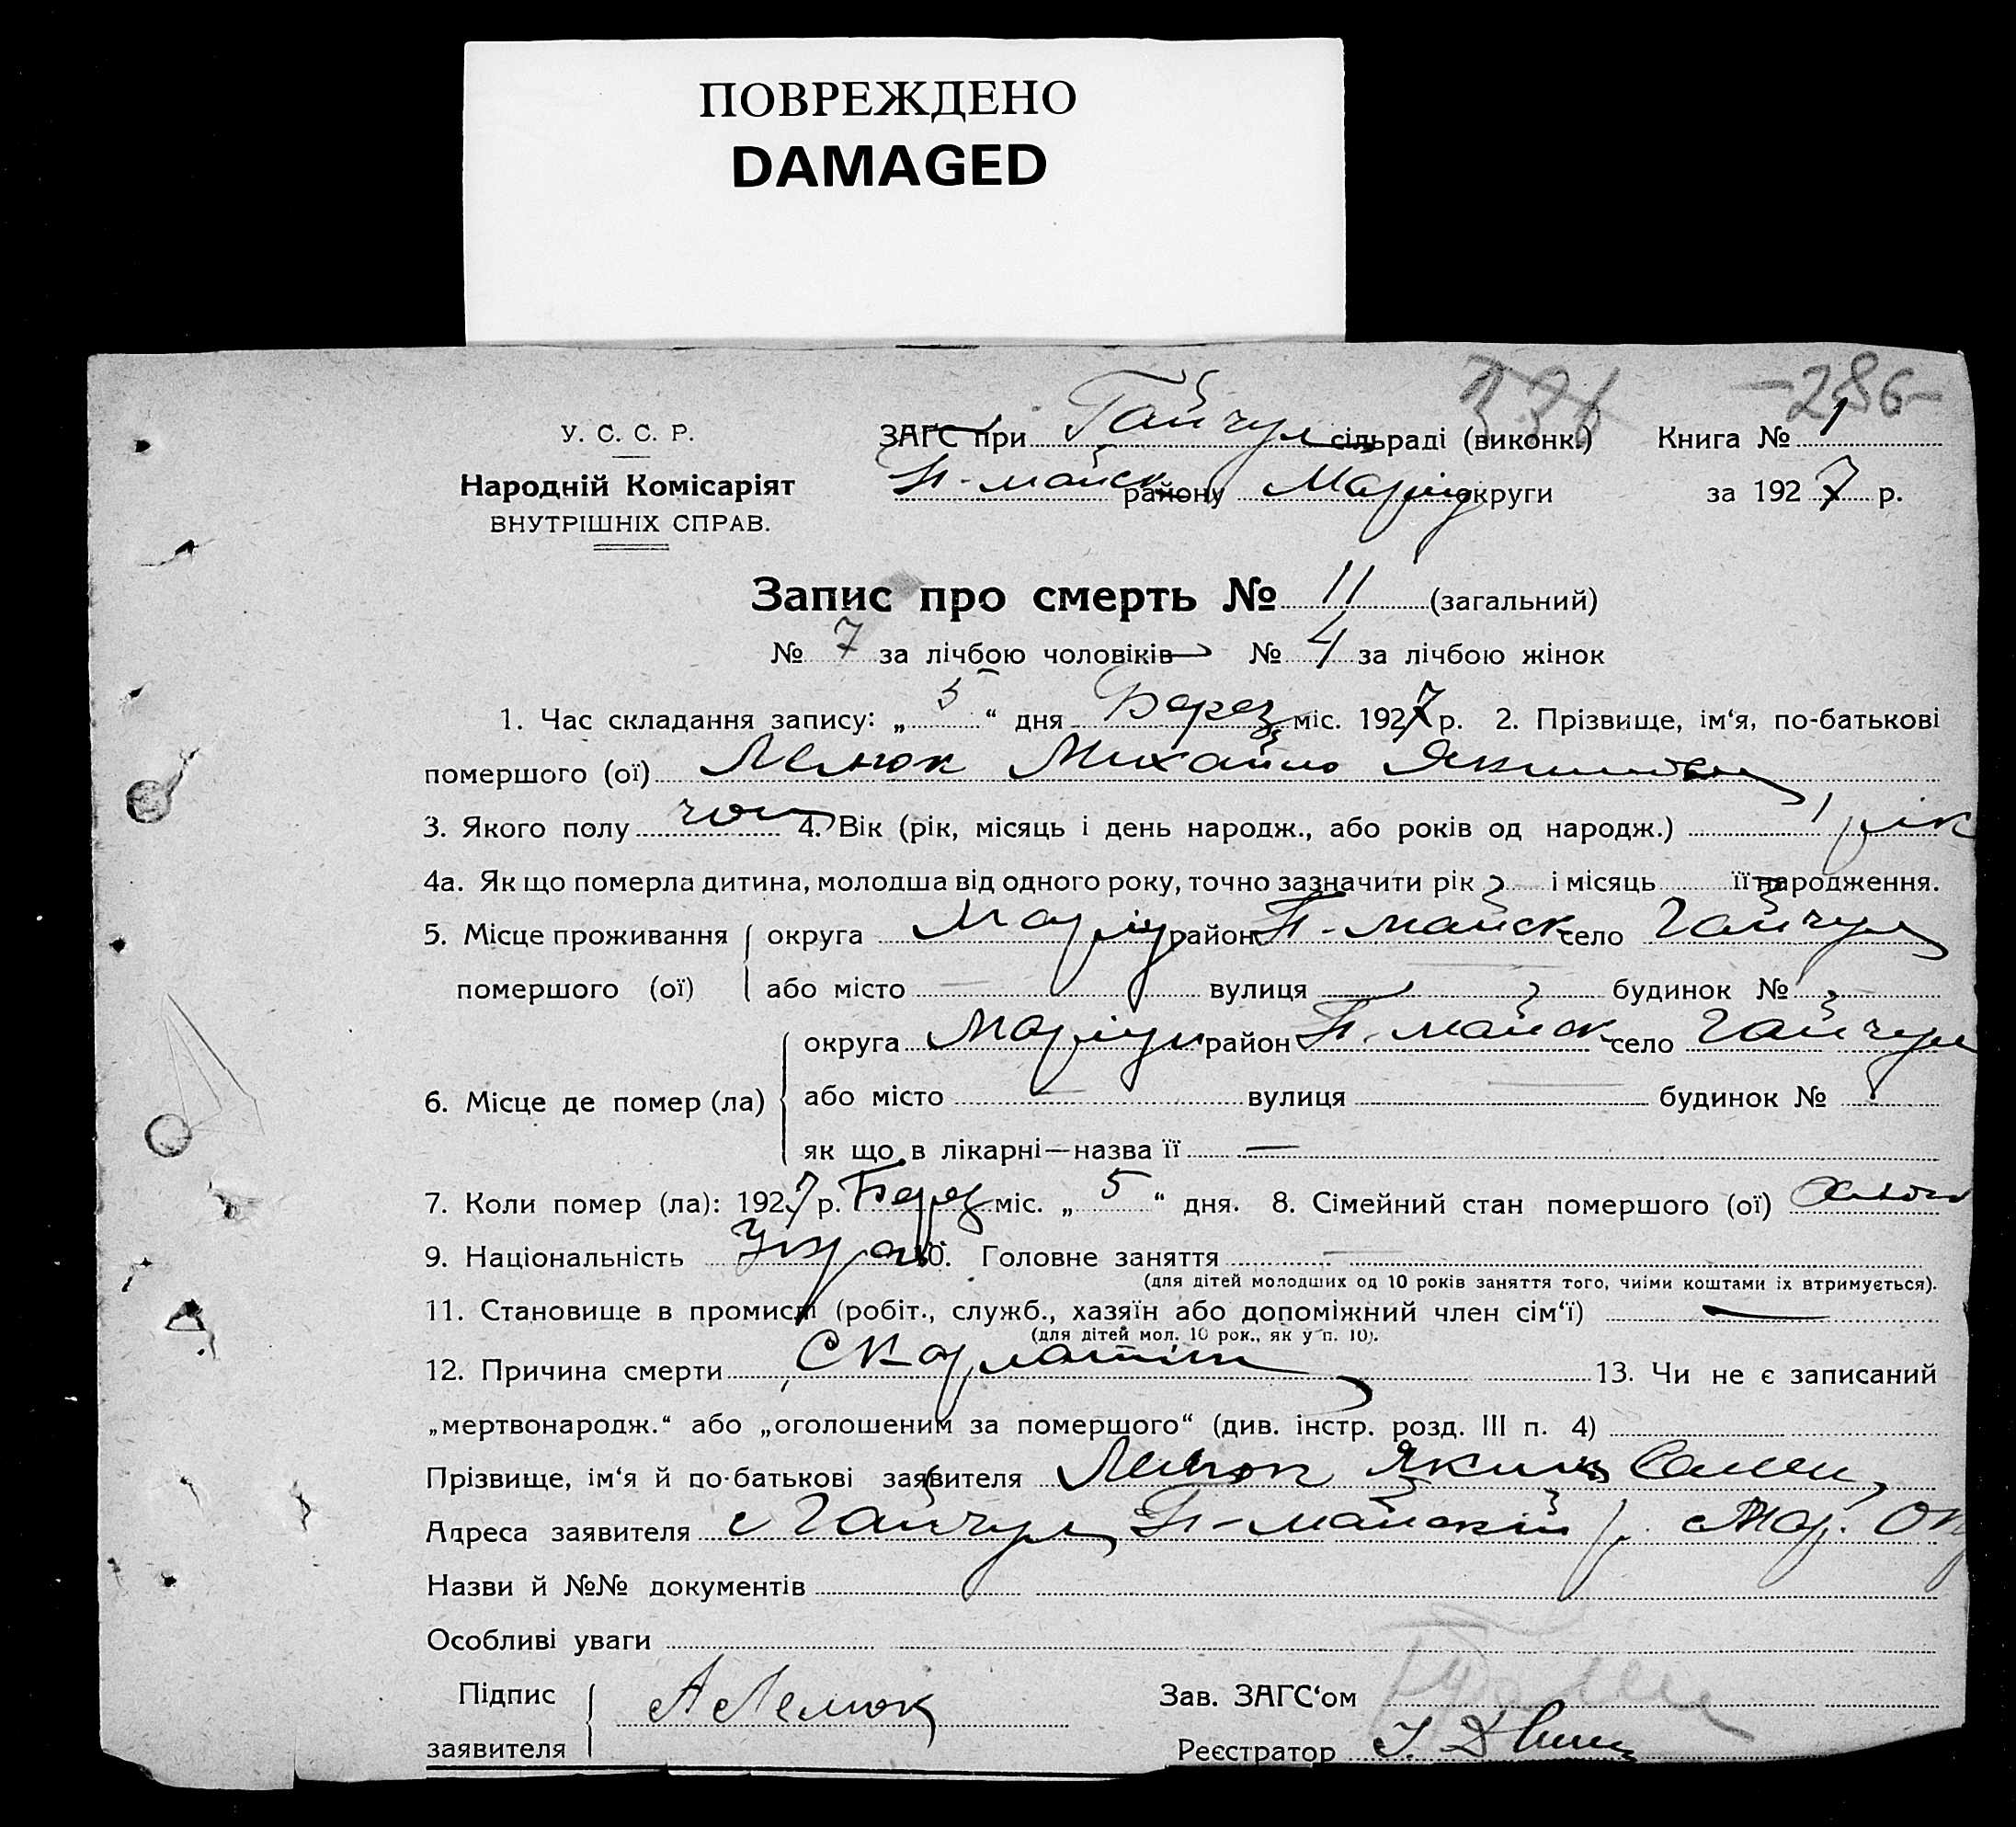 ПОВРЕЖДЕНО
DAMAGED
-286-
У. С. С. Р.
ЗАГС при Гайчул сільраді (виконк.) Книга № 1
Народній Комісаріят
П-майск району Маріуп округи за 1927 р.
ВНУТРІШНІХ СПРАВ.
Запис про смерть № 11 (загальний)
№ 7 за лічбою чоловіків № 4 за лічбою жінок
1. Час складання запису: „5“ дня Берез міс. 1927 р. 2. Прізвище, ім‘я, по-батькові
помершого (ої) Михайло
3. Якого полу чол 4. Вік (рік, місяць і день народж., або років од народж.) 1 рік
4а. Як що померла дитина, молодша від одного року, точно зазначити рік і місяць її народження.
5. Місце проживання округа Маріуп район П-майск село Гайчул
помершого (ої) або місто — вулиця — будинок №
6. Місце де помер (ла) округа Маріуп район П-майск село Гайчул
або місто — вулиця — будинок №
як що в лікарні—назва її —
7. Коли помер (ла): 1927 р. Берез міс. „5“ дня. 8. Сімейний стан помершого (ої)
9. Національність Укра 10. Головне заняття —
(для дітей молодших од 10 років заняття того, чиїми коштами їх втримується).
11. Становище в промислі (робіт., служб., хазяїн або допоміжний член сім‘ї) —
(для дітей мол. 10 рок., як у п. 10).
12. Причина смерти Скарлатіна 13. Чи не є записаний
„мертвонародж.“ або „оголошеним за помершого“ (див. інстр. розд. III п. 4)
Прізвище, ім‘я й по-батькові заявителя Яким
Адреса заявителя с Гайчул П-майский р. Мар. Окр
Назви й №№ документів
Особливі уваги
Підпис
заявителя
Зав. ЗАГС‘ом
Реєстратор